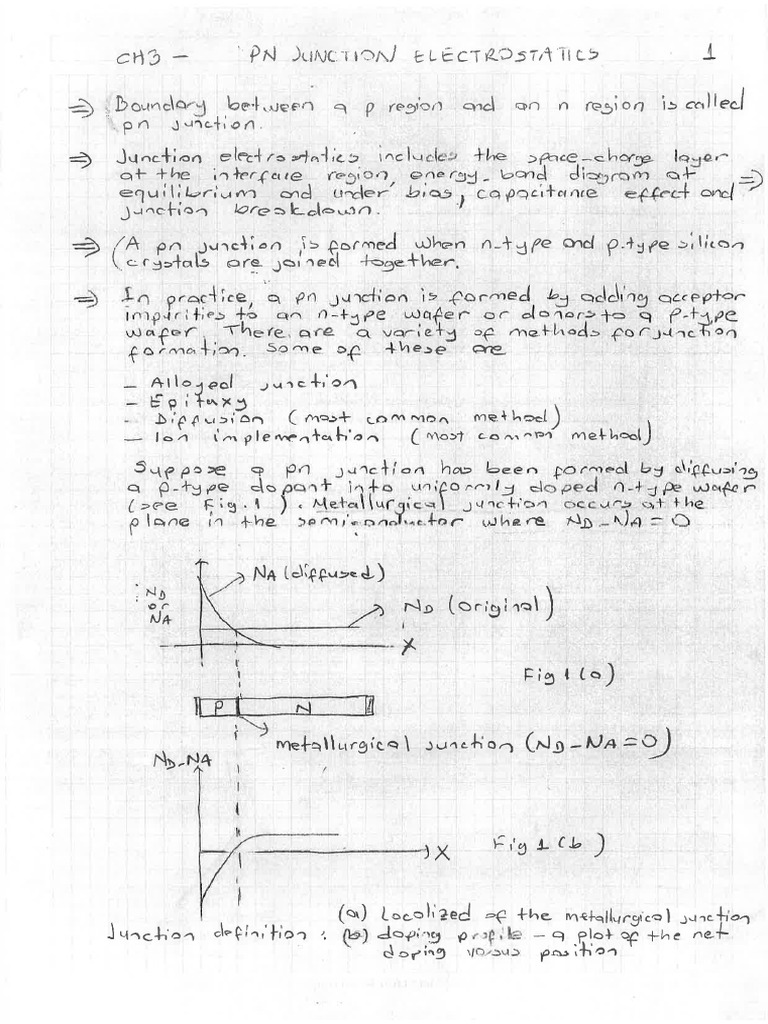 CH3 - PN JUNCTION ELECTROSTATICS 1
⇒ Boundary between a p region and an n region is called
pn junction.
⇒ Junction electrostatics includes the space-charge layer
at the interface region, energy-band diagram at ⇒
equilibrium and under bias, capacitance effect and
junction breakdown.
⇒ (A pn junction is formed when n-type and p-type silicon
crystals are joined together.
⇒ In practice, a pn junction is formed by adding acceptor
impurities to an n-type wafer or donors to a p-type
wafer. There are a variety of methods for junction
formation. Some of these are
- Alloyed junction
- Epitaxy
- Diffusion (most common method)
- Ion implementation (most common method)
Suppose a pn junction has been formed by diffusing
a p-type dopant into uniformly doped n-type wafer
(see Fig. 1). Metallurgical junction occurs at the
plane in the semiconductor where ND-NA=0
NA (diffused)
ND
or
NA
ND (original)
X
Fig 1 (a)
P N
metallurgical junction (ND-NA=0)
ND-NA
X
Fig 1 (b)
(a) Localized of the metallurgical junction
Junction definition : (b) doping profile - a plot of the net
doping versus position